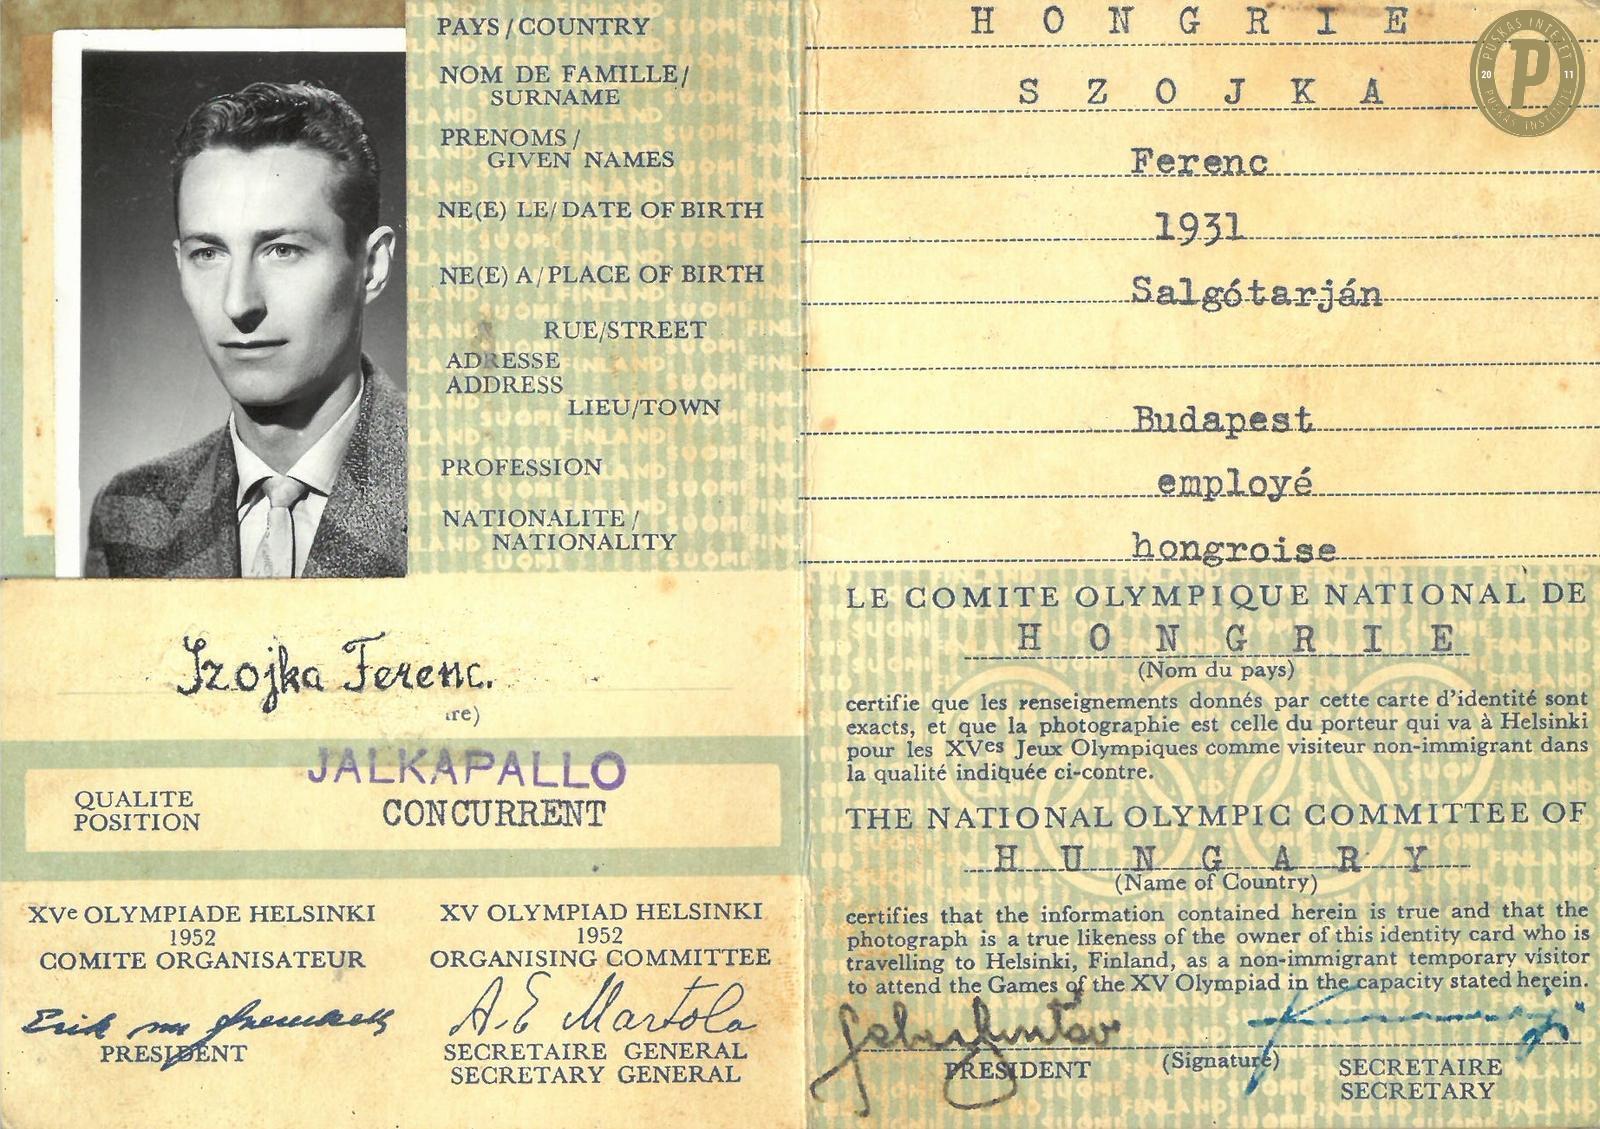 PAYS/COUNTRY
HONGRIE
NOM DE FAMILLE/
SURNAME
SZOJKA
PRENOMS/
GIVEN NAMES
Ferenc
NE(E) LE/DATE OF BIRTH
1931
NE(E) A/PLACE OF BIRTH
Salgótarján
RUE/STREET
ADRESSE
ADDRESS
LIEU/TOWN
Budapest
PROFESSION
employé
NATIONALITE/
NATIONALITY
hongroise
Szojka Ferenc.
ire)
JALKAPALLO
QUALITE
POSITION
CONCURRENT
XVe OLYMPIADE HELSINKI
1952
COMITE ORGANISATEUR
Erik
PRESIDENT
XV OLYMPIAD HELSINKI
1952
ORGANISING COMMITTEE
A.E Martola
SECRETAIRE GENERAL
SECRETARY GENERAL
LE COMITE OLYMPIQUE NATIONAL DE
HONGRIE
(Nom du pays)
certifie que les renseignements donnés par cette carte d'identité sont
exacts, et que la photographie est celle du porteur qui va à Helsinki
pour les XVes Jeux Olympiques comme visiteur non-immigrant dans
la qualité indiquée ci-contre.
THE NATIONAL OLYMPIC COMMITTEE OF
HUNGARY
(Name of Country)
certifies that the information contained herein is true and that the
photograph is a true likeness of the owner of this identity card who is
travelling to Helsinki, Finland, as a non-immigrant temporary visitor
to attend the Games of the XV Olympiad in the capacity stated herein.
PRESIDENT
(Signature)
SECRETAIRE
SECRETARY
PUSKÁS INTÉZET
20 P 11
PUSKÁS INSTITUTE
SUOMI FINLAND